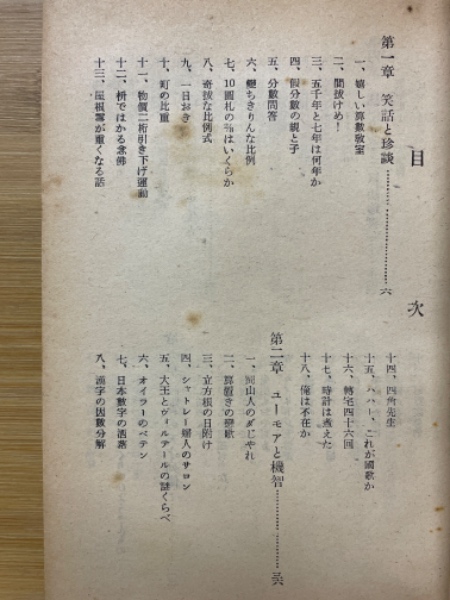 目次
第一章 笑話と珍談…………………六
一、嬉しい算數教室
二、間拔けめ!
三、五千年と七年は何年か
四、假分數の親と子
五、分數問答
六、變ちきりんな比例
七、10圓札の
はいくらか
八、奇拔な比例式
九、一日おき
十、町の比重
十一、物價二桁引き下げ運動
十二、枡ではかる念佛
十三、屋根
が重くなる話
十四、四角先生
十五、ハハー、これが國歌か
十六、轉宅四十六回
十七、時計は煮えた
十八、俺は不在か
第二章 ユーモアと機智…………………三六
一、岡山人のダじやれ
二、算置きの
三、立方根の日附け
四、シャトレー婦人のサロン
五、大王とヴォルテールの謎くらべ
六、オイラーのペテン
七、日本數字の洒落
八、漢字の因數分解